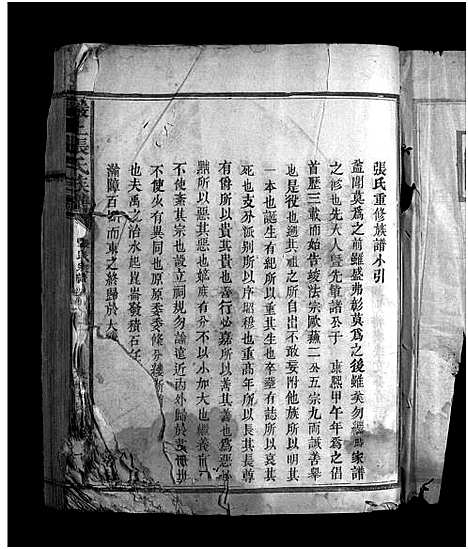 張氏重修族譜小引
蓋聞莫為之前雖盛弗彰莫為之後雖美勿繼 家譜
之修也先大人暨先敏諸公于 康熙甲午年為之倡
首歷三載而始告竣法宗歐蘇二公五宗九兩誠善舉
也是役也遡其祖之所自出不敢妄附他族所以明其
一本也誕生有紀所以重其生也卒葬有誌所以哀其
死也支分派別所以序昭穆也重高年所以長其長尊
有爵所以貴其貴也善行必嘉所以善其善也為惡必
黜所以惡其惡也嫡庶有分不以小加大也繼養
不使紊其宗也設立祠規勿論遠近內外歸於
不使少有異同也原原委委條分縷晰
也夫禹之治水起崑崙發積石
滿障百 而東之終歸於大
張氏族譜